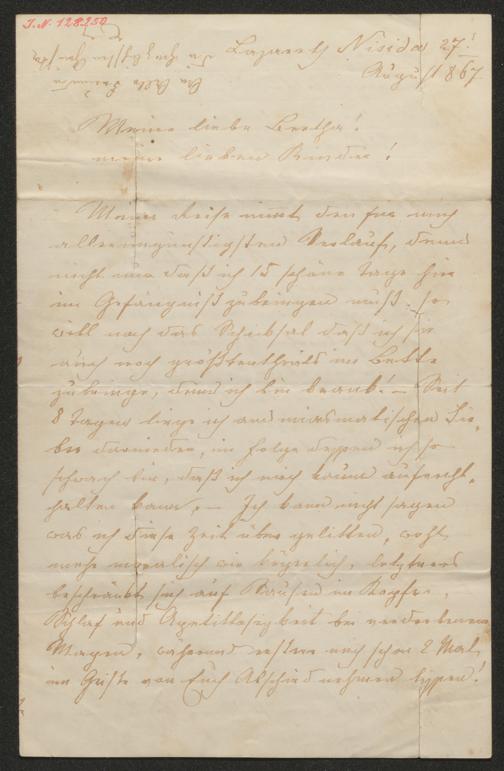 I. N. 128.250
Lazareth Nisida 27!
August 867
Meine liebe Bertha!
meine lieben Kinder!
Meine Reise nimt den für mich
allerungünstigsten Verlauf, denn
nicht nur daß ich 15 schöne Tage hier
im Gefängniß zubringen muß. so
will noch das Schicksal daß ich sie
auch noch größtentheils im Bette
zubringe, denn ich bin krank! – Seit
8 Tagen liege ich an miasmatischen Fie-
ber darnieder, in Folge dessen ich so
schwach bin, daß ich mich kaum aufrecht-
halten kann, – Ich kann nicht sagen
was ich diese Zeit über gelitten, wohl
mehr moralisch wie körperlich, letzteres
beschränkt sich auf Sausen im Kopfe,
Schlaf und Apetitlosigkeit bei verdorbenem
Magen, während erstere mich schon 2 Mal
im Geiste von Euch Abschied nehmen ließen!